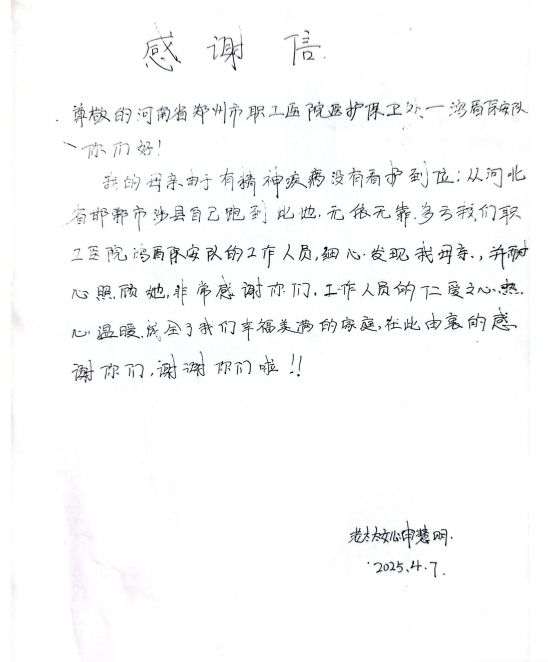 感谢信
尊敬的河南省郑州市职工医院医护保卫处一鸿盾保安队
你们好！
我的母亲由于有精神疾病没有看护到位；从河北
省邯郸市涉县自己跑到此地．无依无靠．多亏我们职
工医院鸿盾保安队的工作人员，细心发现我母亲，并耐
心照顾她，非常感谢你们．工作人员的仁爱之心．热
心．温暖．成全了我们幸福美满的家庭，在此由衷的感
谢你们，谢谢你们啦！！
老太太女儿申慧明．
2025.4.7.